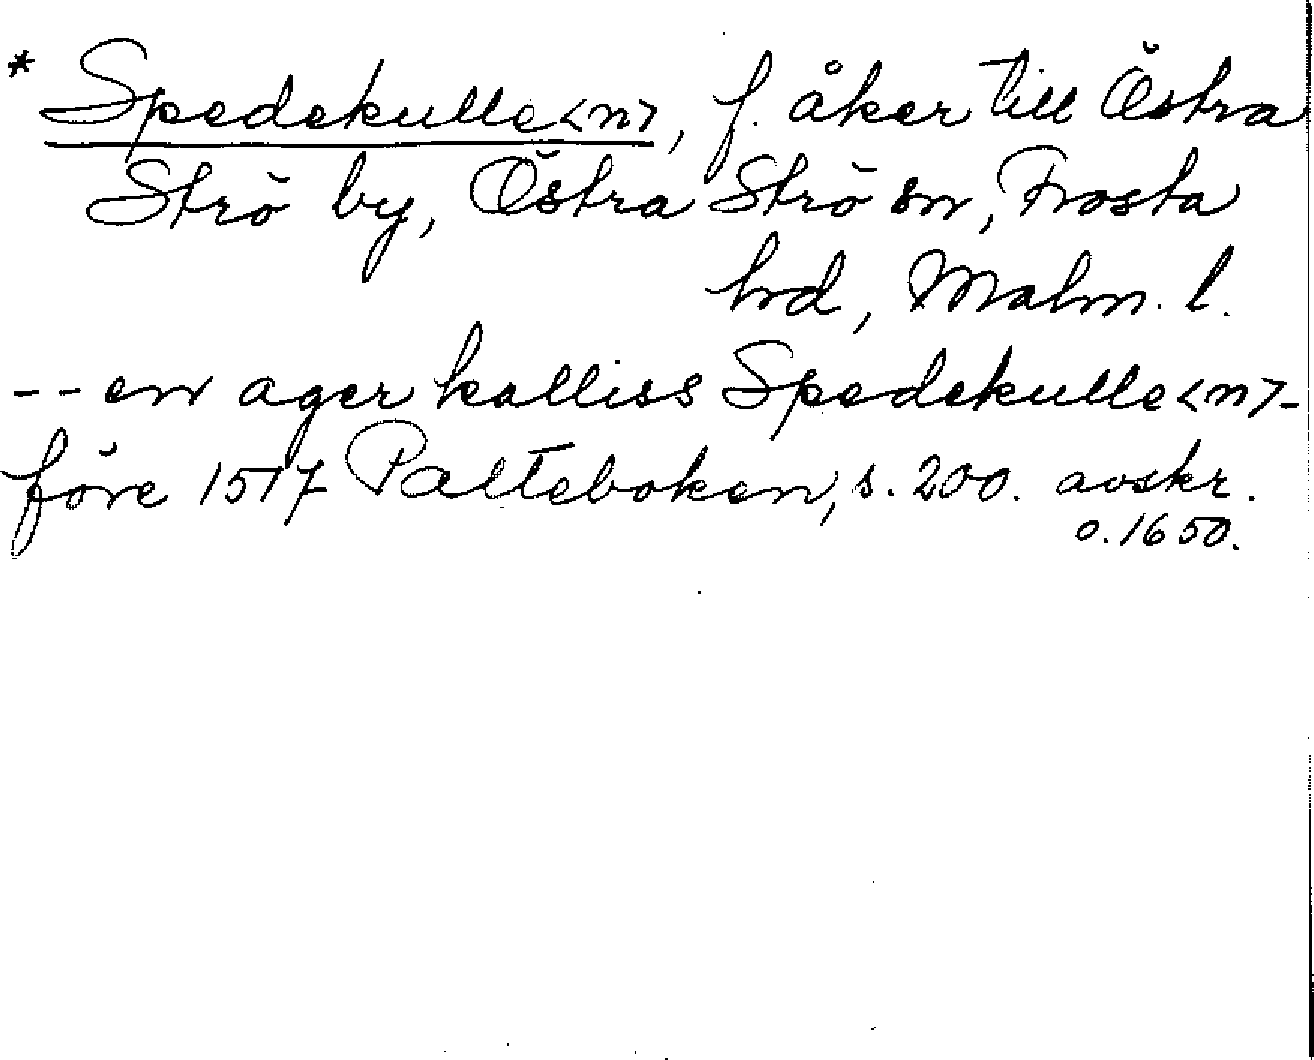 * Spedekulle<n>, f. åker till Östra
Strö by, Östra Strö sn, Frosta
hd, Malm. l.
-- en ager kalliss Spedekulle<n> -
före 1517 Palteboken, s. 200. avskr.
o. 1650.